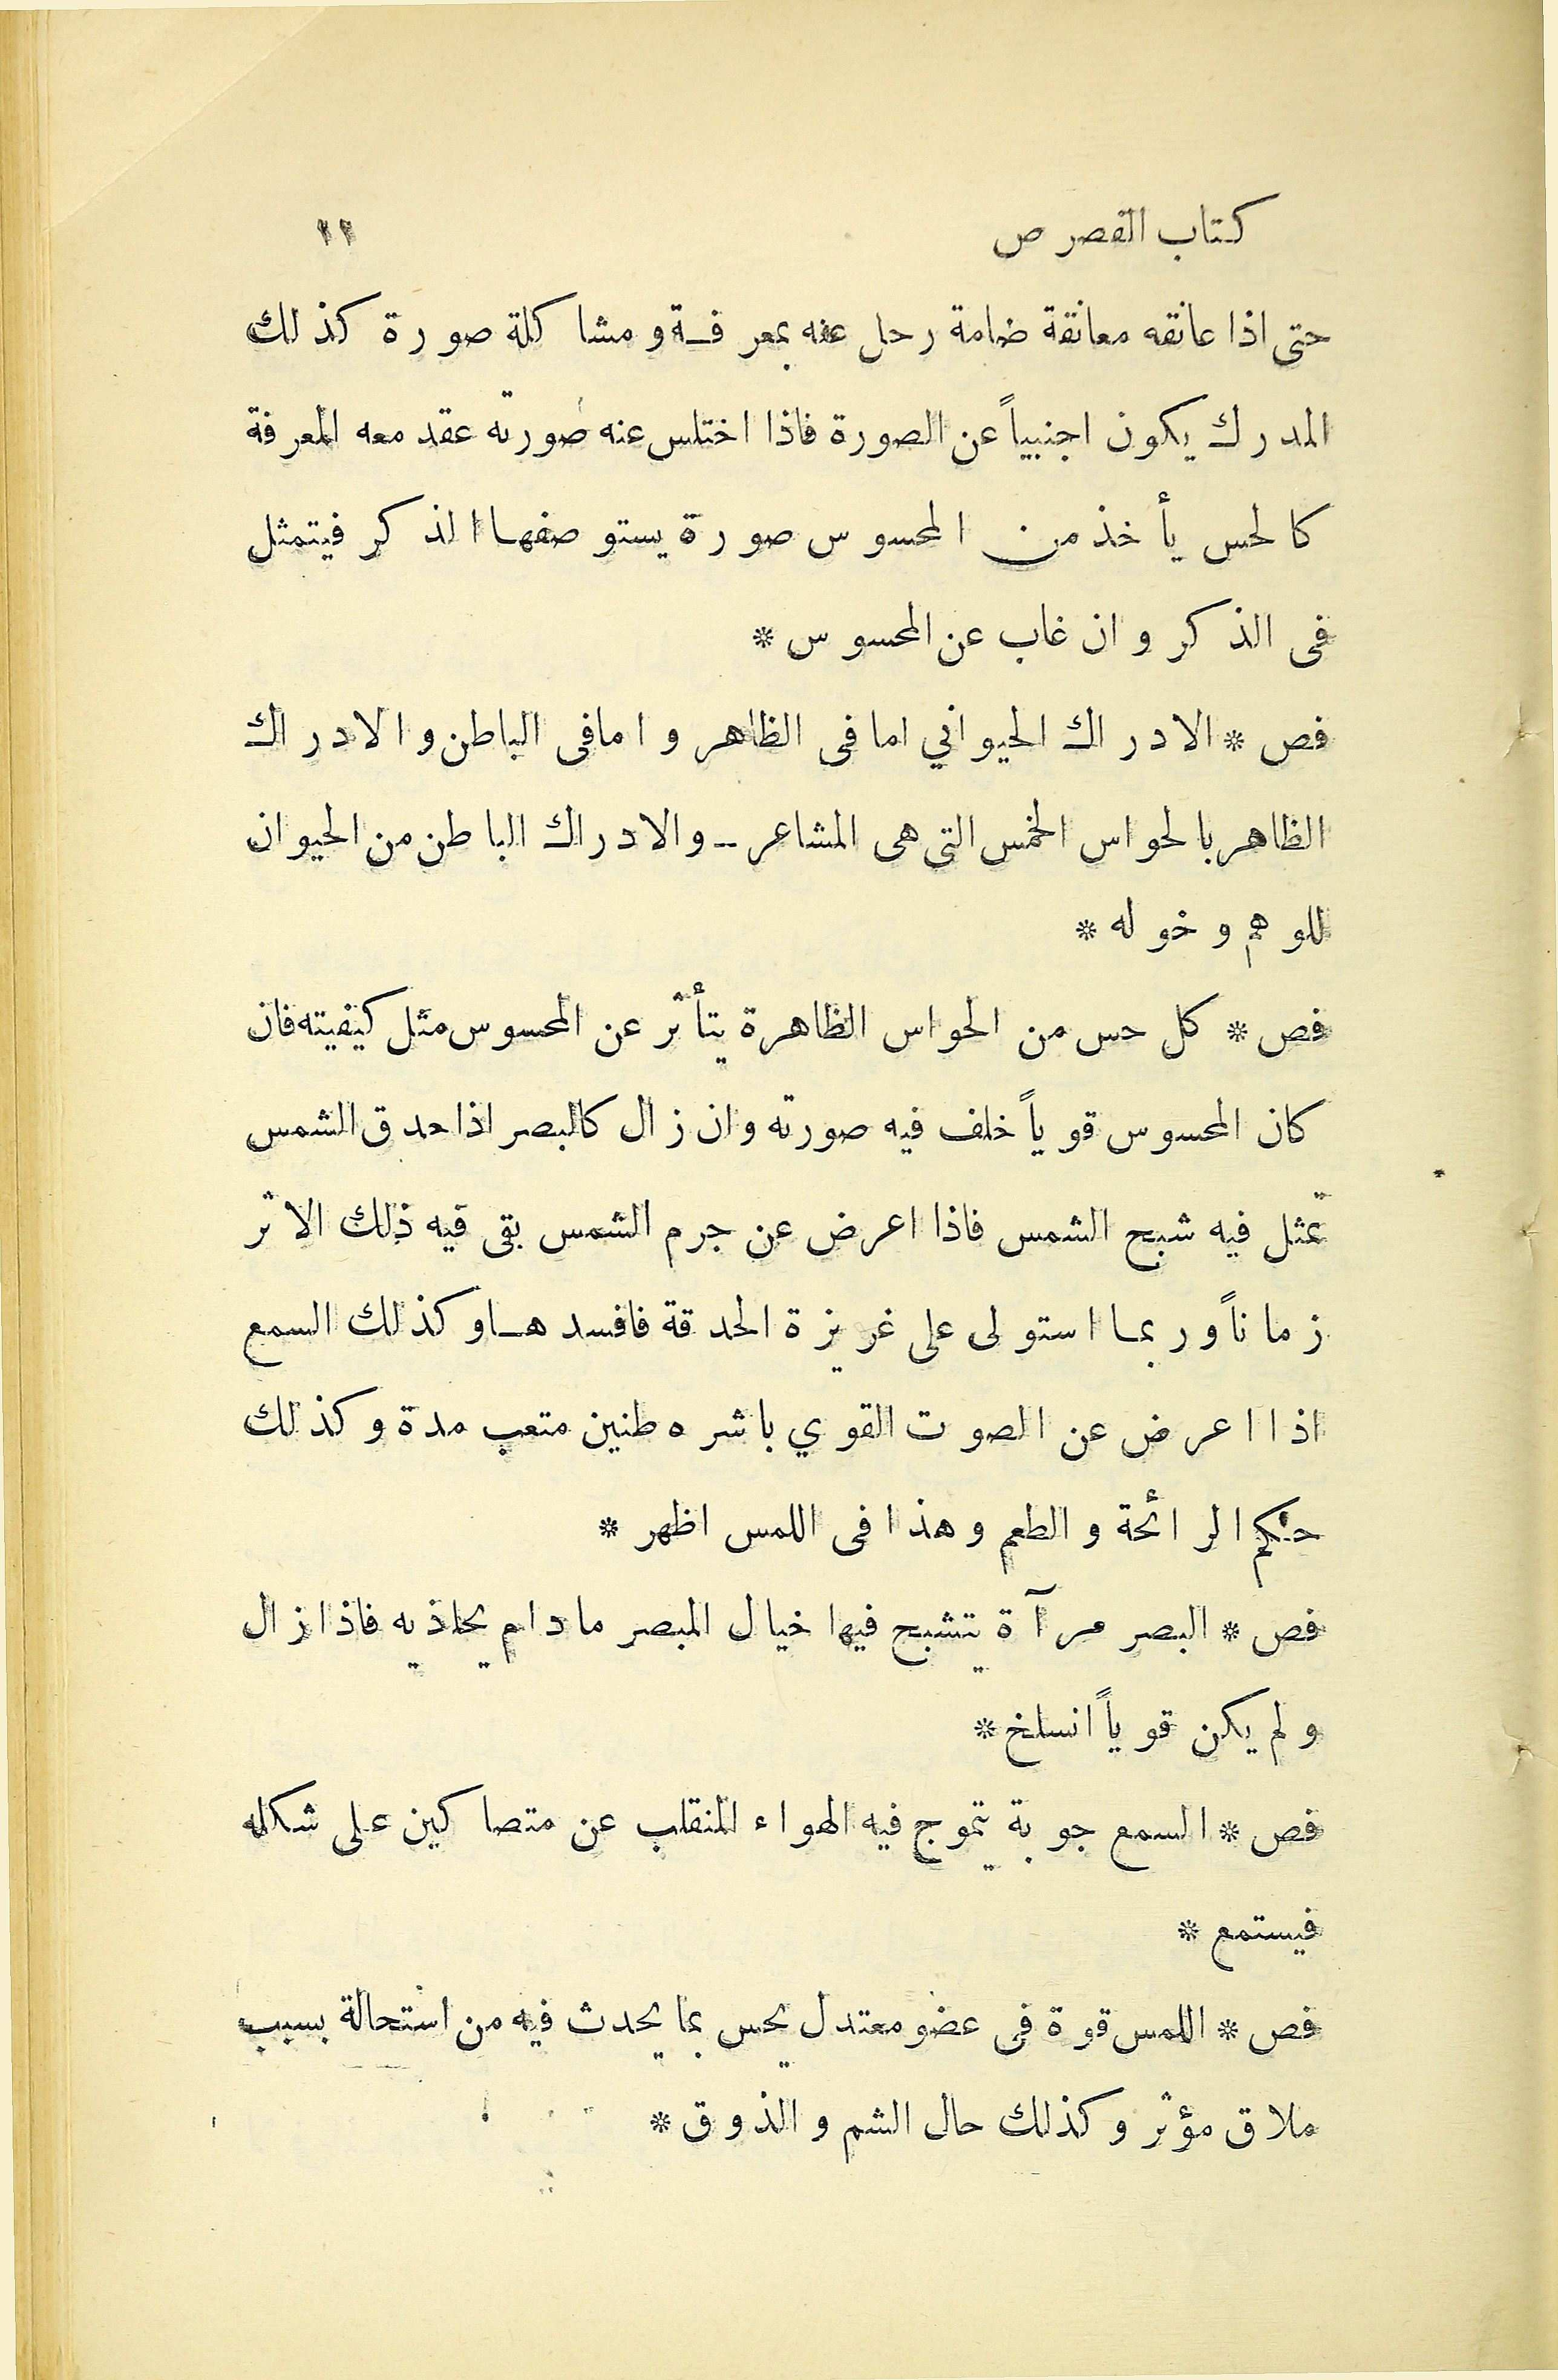 كتاب الفصوص ١١
حتى اذا عانقه معانقة ضامة رحل عنه بمعرفة ومشاكلة صورة كذلك
المدرك يكون اجنبياً عن الصورة فاذا اختلس عنه صورته عقد معه المعرفة
كالحس يأخذ من المحسوس صورة يستوصفها الذكر فيتمثل
فى الذكر وان غاب عن المحسوس *
فص * الادراك الحيواني اما فى الظاهر واما فى الباطن والادراك
الظاهر بالحواس الخمس التى هى المشاعر ـ والادراك الباطن من الحيوان
للوهم وخوله *
فص * كل حس من الحواس الظاهرة يتأثر عن المحسوس مثل كيفيته فان
كان المحسوس قوياً خلف فيه صورته وان زال كالبصر اذا حدق الشمس
تمثل فيه شبح الشمس فاذا اعرض عن جرم الشمس بقى فيه ذلك الاثر
زماناً وربما استولى على غريزة الحدقة فافسدها وكذلك السمع
اذا اعرض عن الصوت القوي باشره طنين متعب مدة وكذلك
حكم الرائحة والطعم وهذا فى اللمس اظهر *
فص * البصر مرآة يتشبح فيها خيال المبصر مادام يحاذيه فاذا زال
ولم يكن قوياً انسلخ *
فص * السمع جوبة يتموج فيه الهواء المنقلب عن متصاكين على شكله
فيستمع *
فص * اللمس قوة فى عضو معتدل يحس بما يحدث فيه من استحالة بسبب
ملاق مؤثر وكذلك حال الشم والذوق *